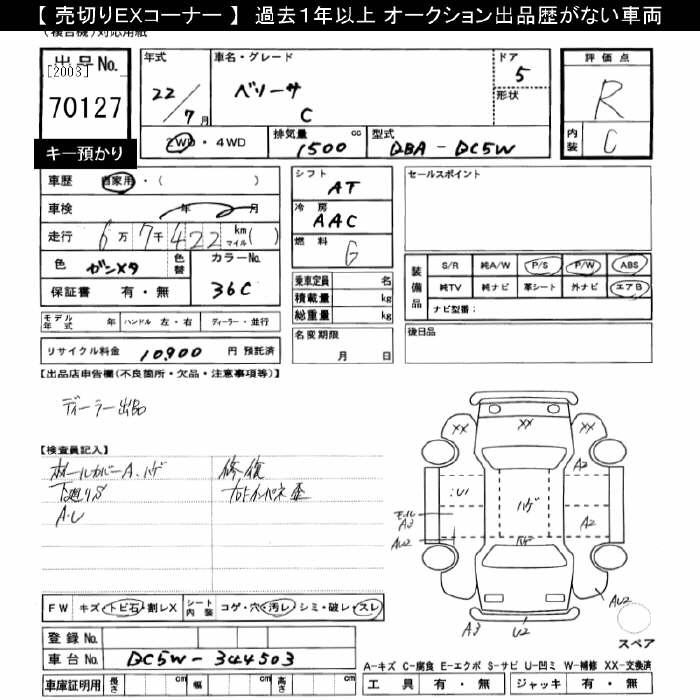 【 売切りEXコーナー 】 過去１年以上 オークション出品歴がない車両
出品No.
[2003]
70127
キー預かり
年式
22/7月
車名・グレード
ベリーサ
C
ドア
5
形状
2WD ・ 4WD
排気量 cc
1500
型式
DBA - DC5W
評価点
R
内装 C
車歴 自家用・( )
車検 年 月
走行 6万 7千 422 km マイル( )
色 ガンメタ 色替 カラーNo.
36C
保証書 有・無
シフト
AT
冷房
AAC
燃料
G
乗車定員 名
積載量 kg
総重量 kg
名変期限
月 日
セールスポイント
装備品
S/R 純A/W P/S P/W ABS
純TV 純ナビ 革シート 外ナビ エアB
ナビ型番:
後日品
モデル年式 年 ハンドル 左・右 ディーラー・並行
リサイクル料金 10,900 円 預託済
【出品店申告欄(不良箇所・欠品・注意事項等)】
ディーラー出品
【検査員記入】
ホールカバーA、ハゲ
下廻りS
A.U
修復
XX
XX
XX
A2
U1
ハゲ
モール
A3
A2
AU2
ハゲ
AU2
A3
U2
スペア
FW キズ・トビ石・割レX シート内装 コゲ・穴・汚レ・シミ・破レ・スレ
登録No.
車台No. DC5W-344503
車庫証明用 長さ cm 幅 cm 高さ cm
A-キズ C-腐食 E-エクボ S-サビ U-凹ミ W-補修 XX-交換済
工具 有・無 ジャッキ 有・無